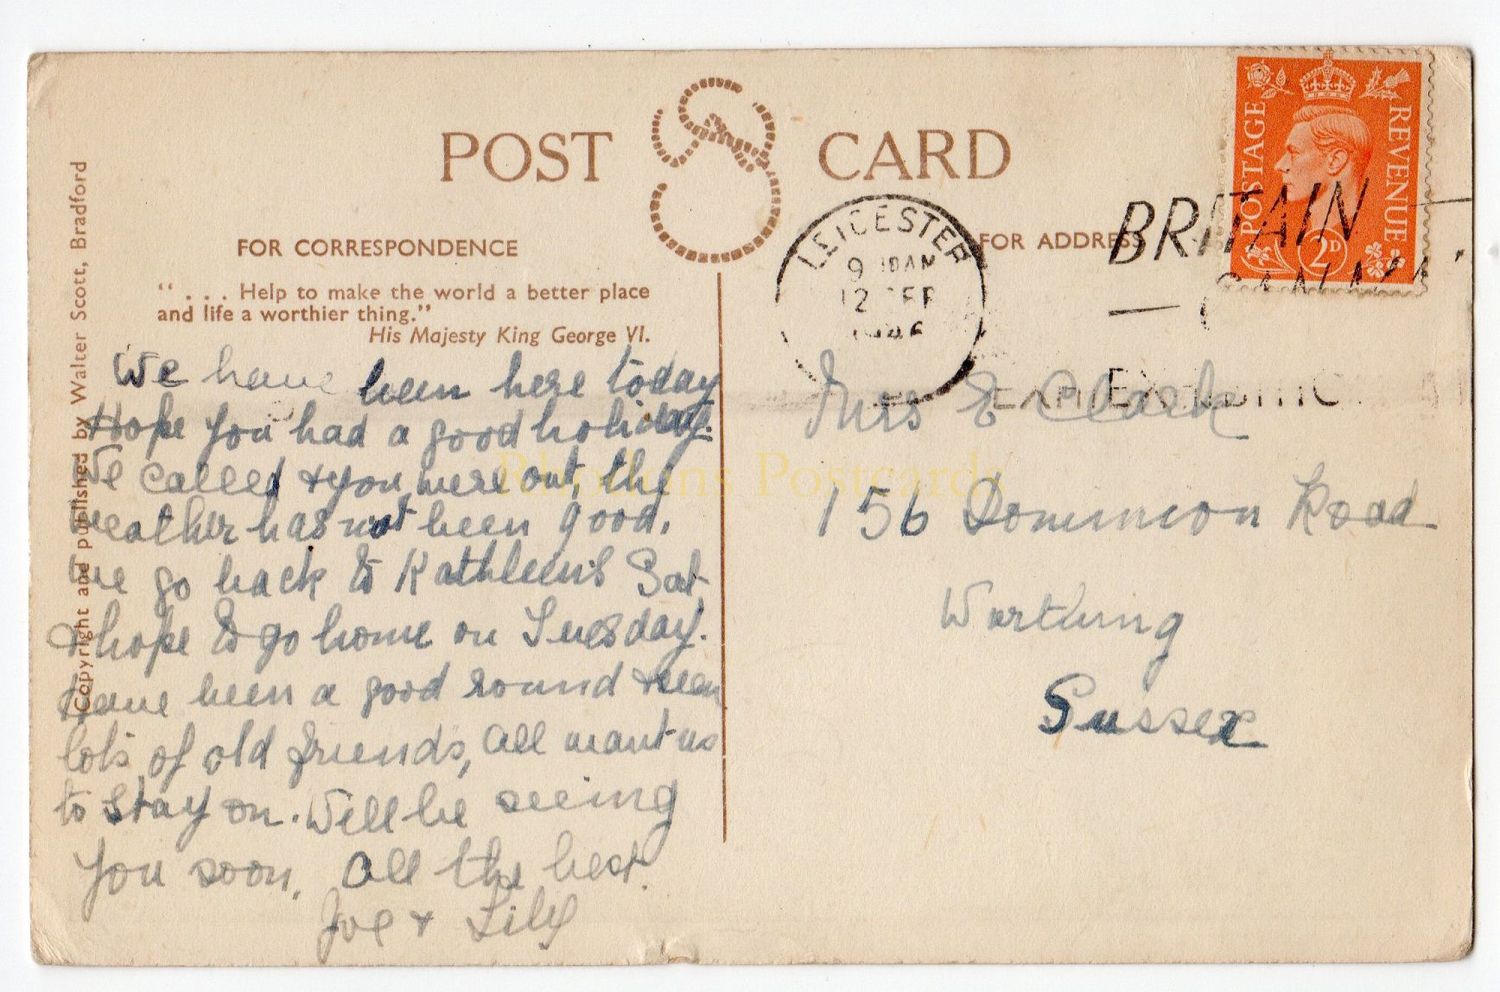 POST CARD
FOR CORRESPONDENCE
". . . Help to make the world a better place
and life a worthier thing."
His Majesty King George VI.
We have been here today
Hope you had a good holiday.
We called & you were out, the
weather has not been good.
We go back to Kathleen's Sat
& hope to go home on Tuesday.
Have been a good round & seen
lots of old friends, all want us
to stay on. Will be seeing
you soon. All the best.
Joe & Lily
Copyright and published by Walter Scott, Bradford
FOR ADDRESS
LEICESTER
9 AM
12 SEP
1946
BRITAIN
POSTAGE
REVENUE
2D
Mrs E Clark
156 Dominion Road
Worthing
Sussex
Rhodens Postcards